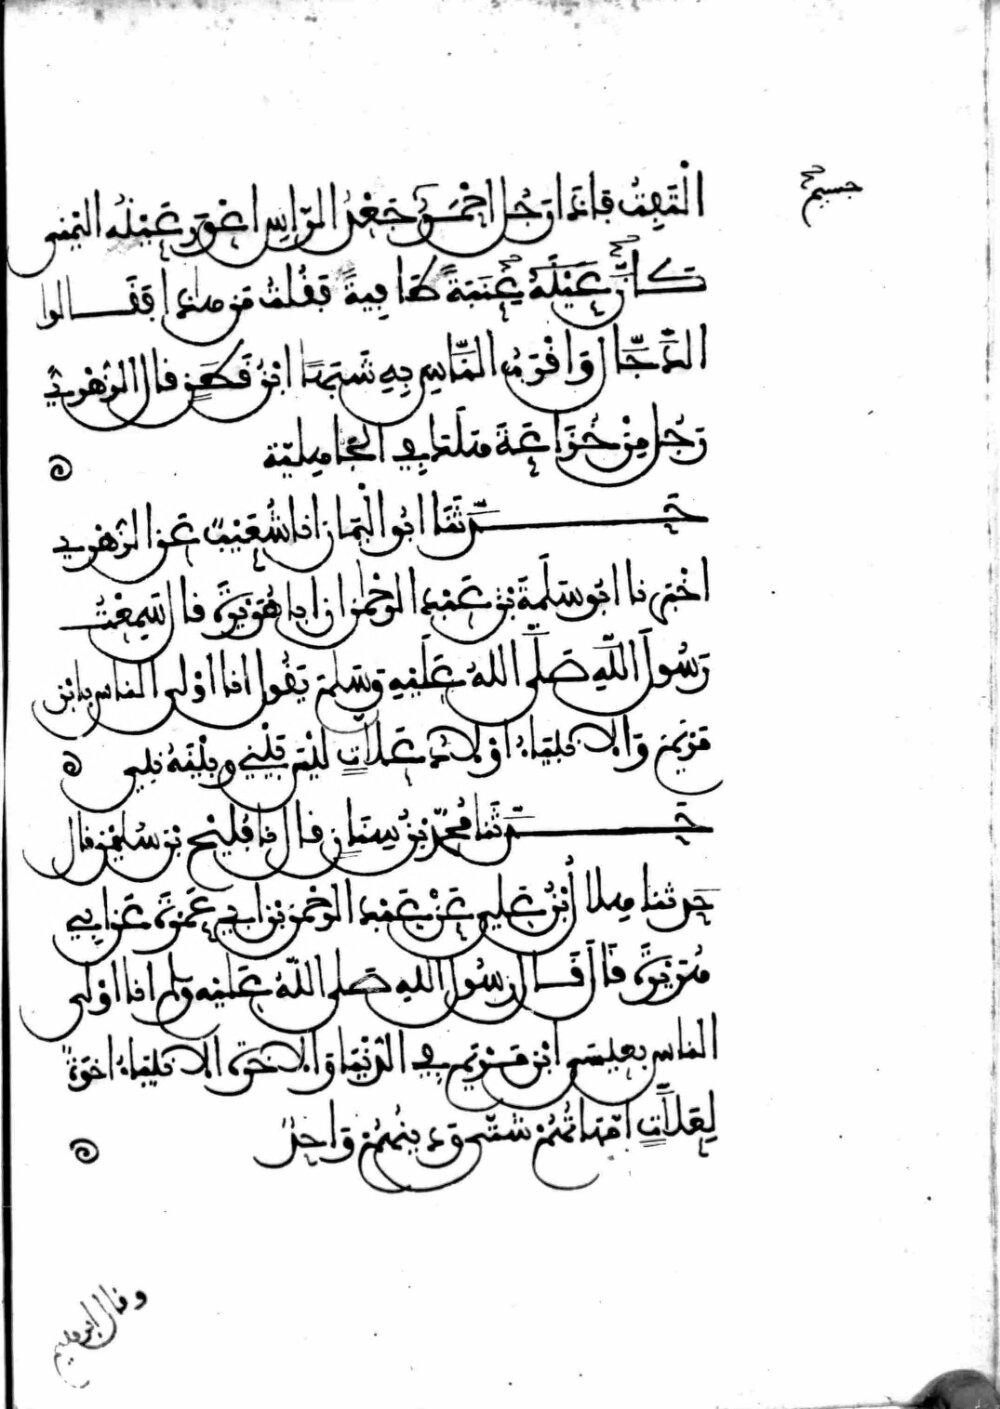 جسيم
الْتَفِتُ فَإِذَا رَجُلٌ احْمَرُ جَعْدُ الرَّاسِ اعْوَرُ عَيْنِهِ الْيُمْنَى
كَأَنَّ عَيْنَهُ عِنَبَةٌ طَافِيَةٌ فَقُلْتُ مَن هذا فقالوا
الدَّجَّالُ وَاقْرَبُ النَّاسِ بِهِ شَبَهًا ابْنُ قَطَنٍ قال الزُّهْرِي
رَجُلٌ مِنْ خُزَاعَةَ هَلَكَ فِي الجَاهِلِيَّة
حَدَّثَنَا ابُو الْيَمَانِ انا شُعَيْبٌ عَنِ الزُّهْرِي
اخْبَرَنا ابُو سَلَمَةَ بْنُ عَبْدِ الرحْمٰن ان ابا هُرَيْرَةَ قال سَمِعْتُ
رَسُولَ اللَّهِ صَلَّى اللهُ عَلَيْهِ وَسَلَّمَ يَقُولُ انا اوْلى الناس بابْنِ
مَرْيَمَ وَالانبياءُ اوْلادُ عَلَّاتٍ لَيْسَ بَيْنِي وبيْنَهُ نبي
حَدَّثَنَا مُحَمَّدُ بْنُ سِنَانٍ قال نا فُلَيْحُ بْنُ سُلَيْمٰنَ قال
حدثنا هلالُ بْنُ عَلِيٍّ عَنْ عَبْدِ الرحْمنِ بْنِ ابي عَمْرَةَ عَنْ ابي
هُرَيْرَةَ قَالَ قَالَ رَسُولُ اللهِ صَلى اللَّهُ عَلَيْهِ وسلم انا اوْلى
الناس بعِيسَى ابْنِ مَرْيَمَ فِي الدُّنْيَا وَالاخرَةِ الانبياءُ اخوَةٌ
لِعَلَّاتٍ امَّهَاتُهُمْ شَتَّى وَدِينُهُمْ وَاحِدٌ
وقال ابرهيم